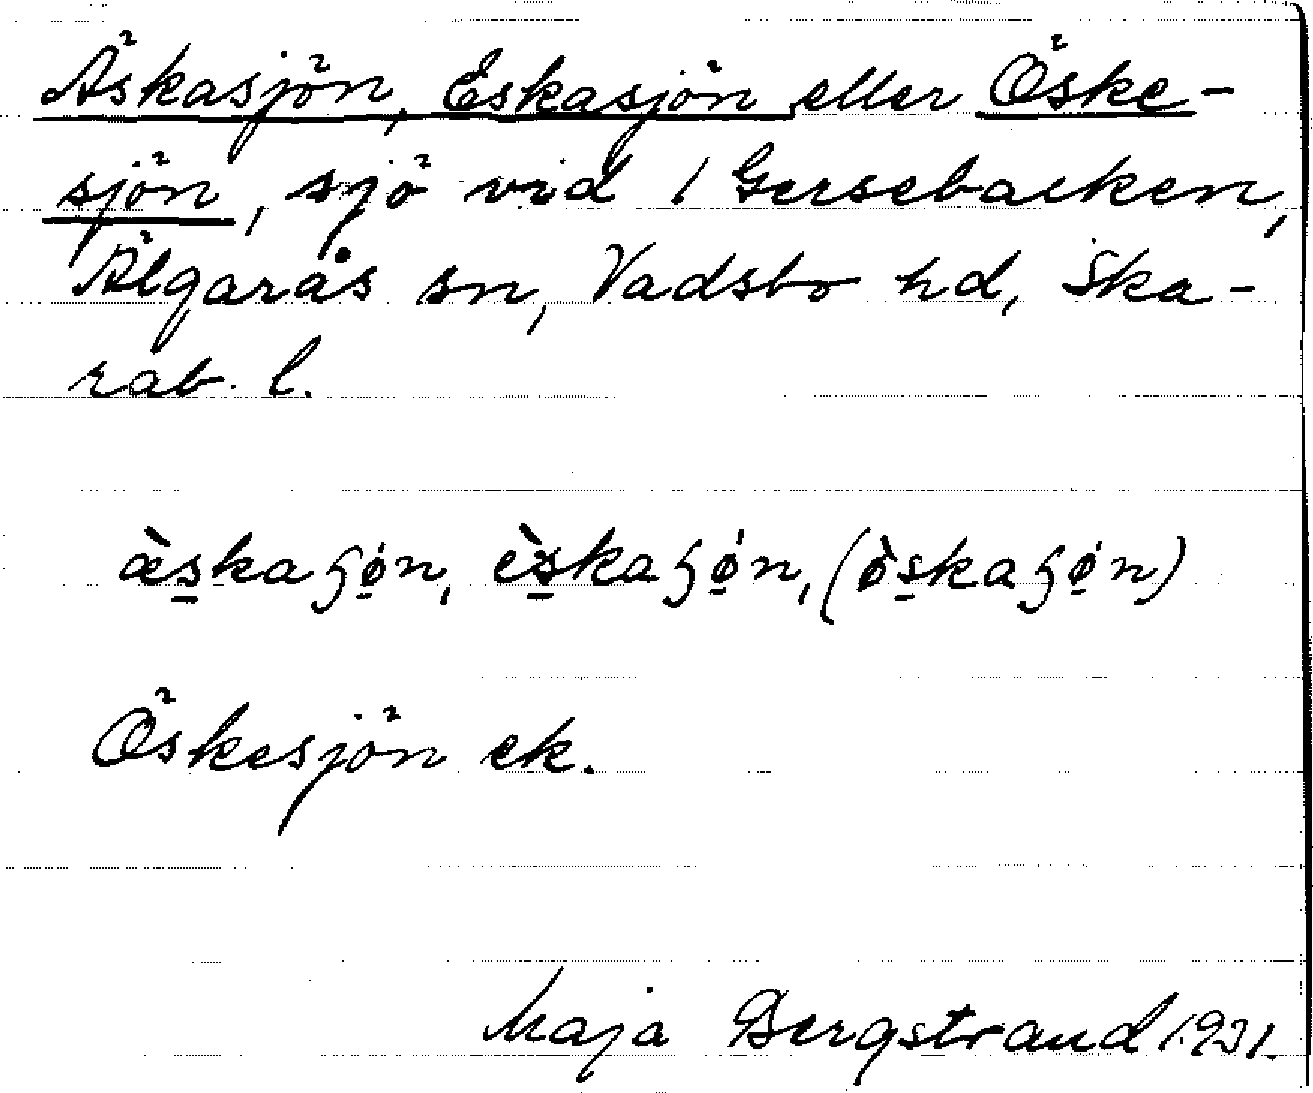 Äskasjön, Eskasjön eller Öske-
sjön, sjö vid 1 Gersebacken,
Älgarås sn, Vadsbo hd, Ska-
rab. l.
æ̀s̠kaʃǿ̠n, ès̠kaʃǿ̠n, (ø̀s̠kaʃǿ̠n)
Öskesjön ek.
Maja Bergstrand 1931.